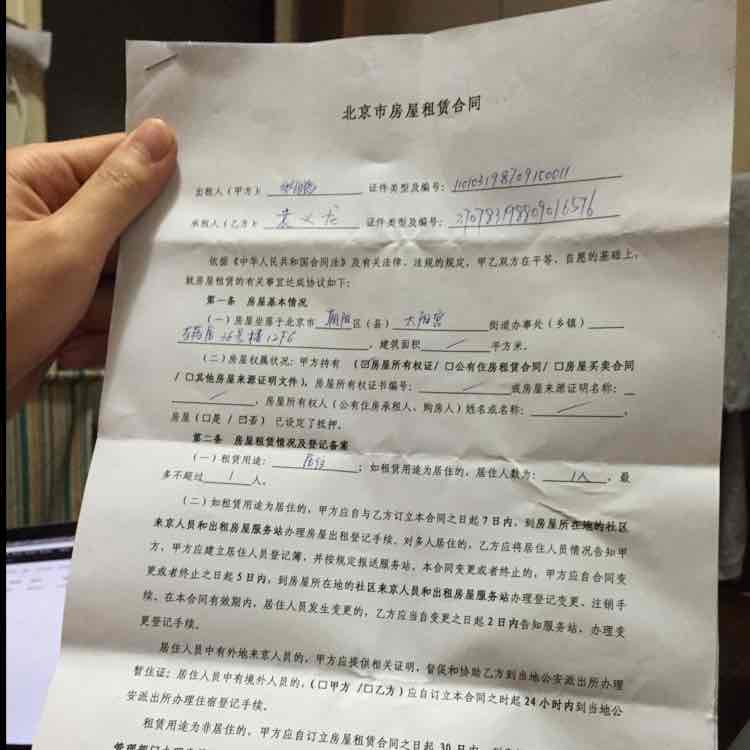 北京市房屋租赁合同
出租人（甲方）： 证件类型及编号：110103198709150011
承租人（乙方）：袁义龙 证件类型及编号：370783198809016576
依据《中华人民共和国合同法》及有关法律、法规的规定，甲乙双方在平等、自愿的基础上，
就房屋租赁的有关事宜达成协议如下：
第一条 房屋基本情况
（一）房屋坐落于北京市朝阳区（县）太阳宫街道办事处（乡镇）
芍药居26号楼1276，建筑面积/平方米。
（二）房屋权属状况：甲方持有（☑房屋所有权证/□公有住房租赁合同/□房屋买卖合同
/□其他房屋来源证明文件），房屋所有权证书编号：/或房屋来源证明名称：
/，房屋所有权人（公有住房承租人、购房人）姓名或名称：/，
房屋（□是/☑否）已设定了抵押。
第二条 房屋租赁情况及登记备案
（一）租赁用途：居住；如租赁用途为居住的，居住人数为：1人，最
多不超过1人。
（二）如租赁用途为居住的，甲方应自与乙方订立本合同之日起7日内，到房屋所在地的社区
来京人员和出租房屋服务站办理房屋出租登记手续。对多人居住的，乙方应将居住人员情况告知甲
方，甲方应建立居住人员登记簿，并按规定报送服务站。本合同变更或者终止的，甲方应自合同变
更或者终止之日起5日内，到房屋所在地的社区来京人员和出租房屋服务站办理登记变更、注销手
续。在本合同有效期内，居住人员发生变更的，乙方应当自变更之日起2日内告知服务站，办理变
更登记手续。
居住人员中有外地来京人员的，甲方应提供相关证明，督促和协助乙方到当地公安派出所办理
暂住证；居住人员中有境外人员的，（□甲方/□乙方）应自订立本合同之时起24小时内到当地公
安派出所办理住宿登记手续。
租赁用途为非居住的，甲方应自订立房屋租赁合同之日起30日内，到